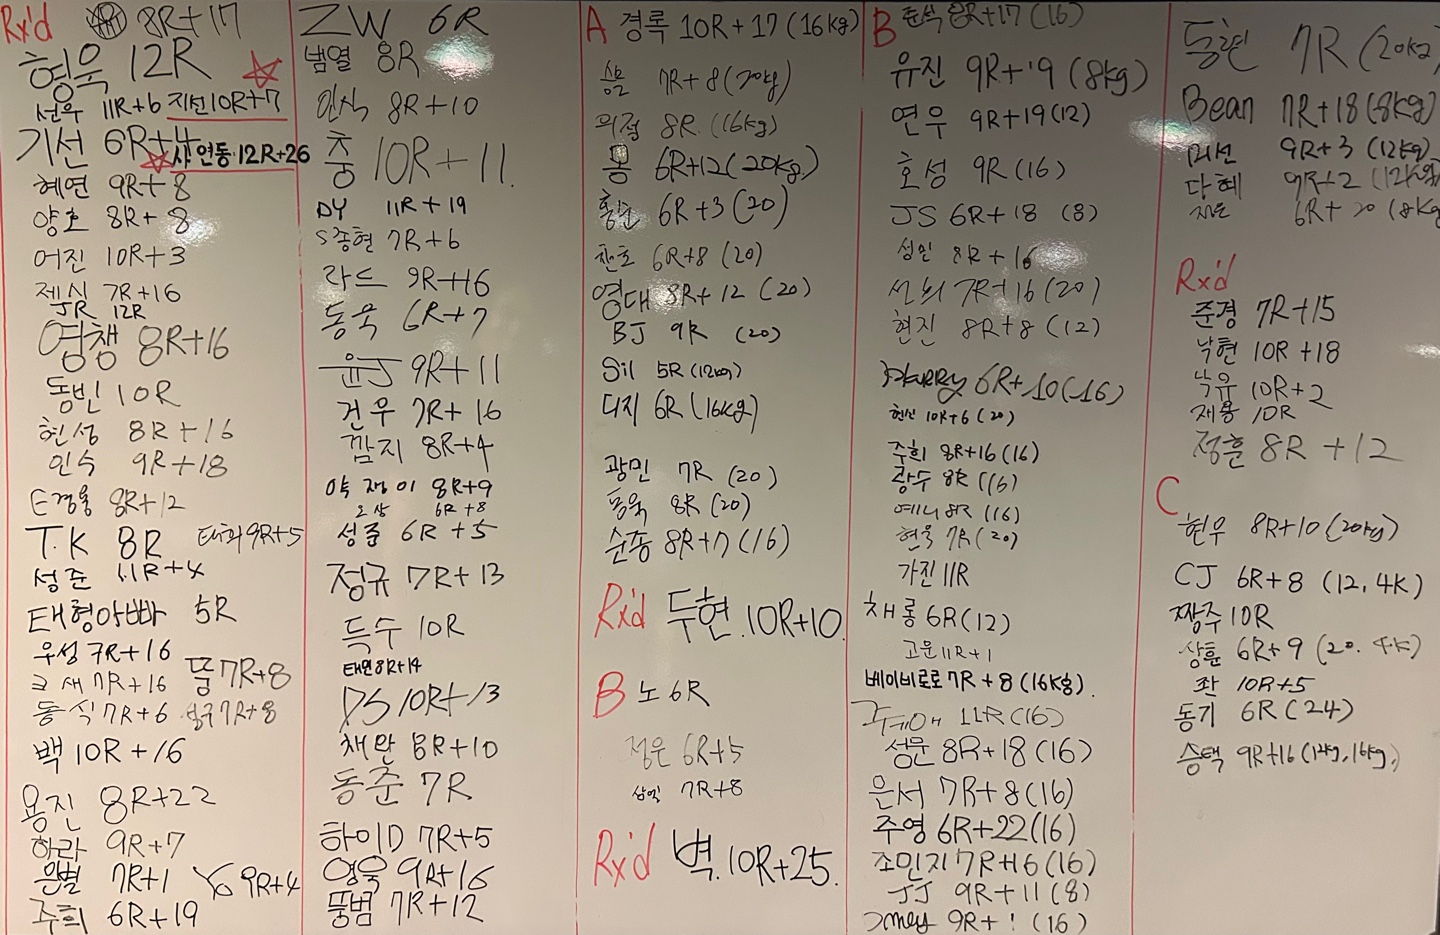 Rx'd 8R+17
형욱 12R
선우 11R+6 지선 10R+7
기선 6R+4
샤 연동 12R+26
혜연 9R+8
양호 8R+8
어진 10R+3
제심 7R+16
JR 12R
영챙 8R+16
동빈 10R
현성 8R+16
인숙 9R+18
E경율 8R+12
T.K 8R 태희 9R+5
성준 11R+4
태형아빠 5R
우성 7R+16
크새 7R+16 뚬 7R+8
동식 7R+6 성규 7R+8
백 10R+16
용진 8R+22
하라 9R+7
은별 7R+1 YG 9R+4
주희 6R+19
ZW 6R
범열 8R
인식 8R+10
충 10R+11
DY 11R+19
S종현 7R+6
라드 9R+16
동욱 6R+7
윤J 9R+11
건우 7R+16
깜지 8R+4
약쟁이 8R+9
오상 6R+8
성준 6R+5
정규 7R+13
득수 10R
태연 8R+14
DS 10R+13
채완 8R+10
동준 7R
하이D 7R+5
영욱 9R+16
뚱범 7R+12
A 경록 10R+17 (16kg)
7R+8 (20kg)
의절 8R (16kg)
몽 6R+12 (20kg)
6R+3 (20)
찬호 6R+8 (20)
영대 8R+12 (20)
BJ 9R (20)
Sil 5R (12kg)
디지 6R (16kg)
광민 7R (20)
동욱 8R (20)
순동 8R+7 (16)
Rx'd 두현 10R+10
B 노 6R
정은 6R+5
삼엘 7R+8
Rx'd 벽 10R+25
B 준석 8R+17 (16)
유진 9R+19 (8kg)
연우 9R+19 (12)
호성 9R (16)
JS 6R+18 (8)
성민 8R+16
선뇌 7R+16 (20)
현진 8R+8 (12)
Harry 6R+10 (16)
현신 10R+6 (20)
주희 8R+16 (16)
광수 8R (16)
예니 8R (16)
현욱 7R (20)
가진 11R
채롱 6R (12)
고문 11R+1
베이비로로 7R+8 (16kg)
11R (16)
성문 8R+18 (16)
은서 7R+8 (16)
주영 6R+22 (16)
조민지 7R+16 (16)
JJ 9R+11 (8)
9R+1 (16)
동현 7R (20kg)
Bean 7R+18 (8kg)
미선 9R+3 (12kg)
다혜 9R+2 (12kg)
지은 6R+20 (8kg)
Rx'd
준경 7R+15
낙현 10R+18
낙유 10R+2
제용 10R
정훈 8R+12
C
현우 8R+10 (20kg)
CJ 6R+8 (12, 4K)
짱주 10R
상훈 6R+9 (20. 4K)
좐 10R+5
동기 6R (24)
승택 9R+16 (12kg, 16kg)